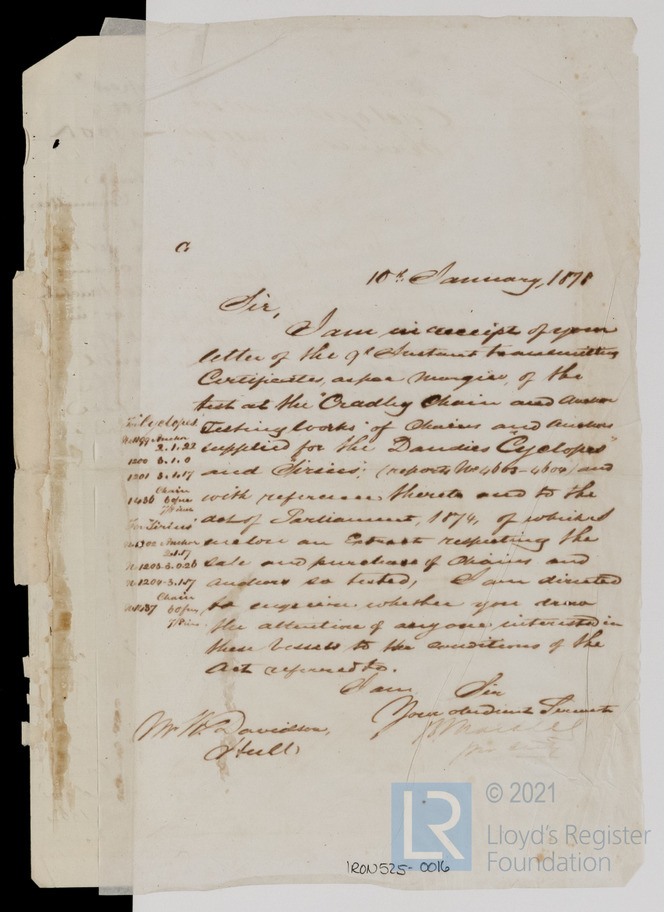 C
10th January, 1878
Sir,
I am in receipt of your
letter of the 9th Instant transmitting
Certificates, as per margin, of the
test at the "Cradley Chain and Anchor
Testing Works" of Chains and Anchors
supplied for the Dandies "Cyclopes"
and Sirius, (reports No 4663-4604) and
with reference thereto and to the
Act of Parliament, 1874, of which I
enclose an Extract respecting the
sale and purchase of Chains and
Anchors so tested, I am directed
to enquire whether you drew
the attention of any one interested in
these Vessels to the conditions of the
Act referred to.
I am, Sir
Your obedient Servant
Mr W. Davidson,
Hull,
Cyclopes
Anchor
1200 3.1.0
1201 3.1.17
Chain
1436
For Sirius
Anchor
2.1.17
No 1203 3.0.23
No 1204 3.1.17
Chain
60 fms
IRON525-0016
LR
© 2021
Lloyd's Register
Foundation